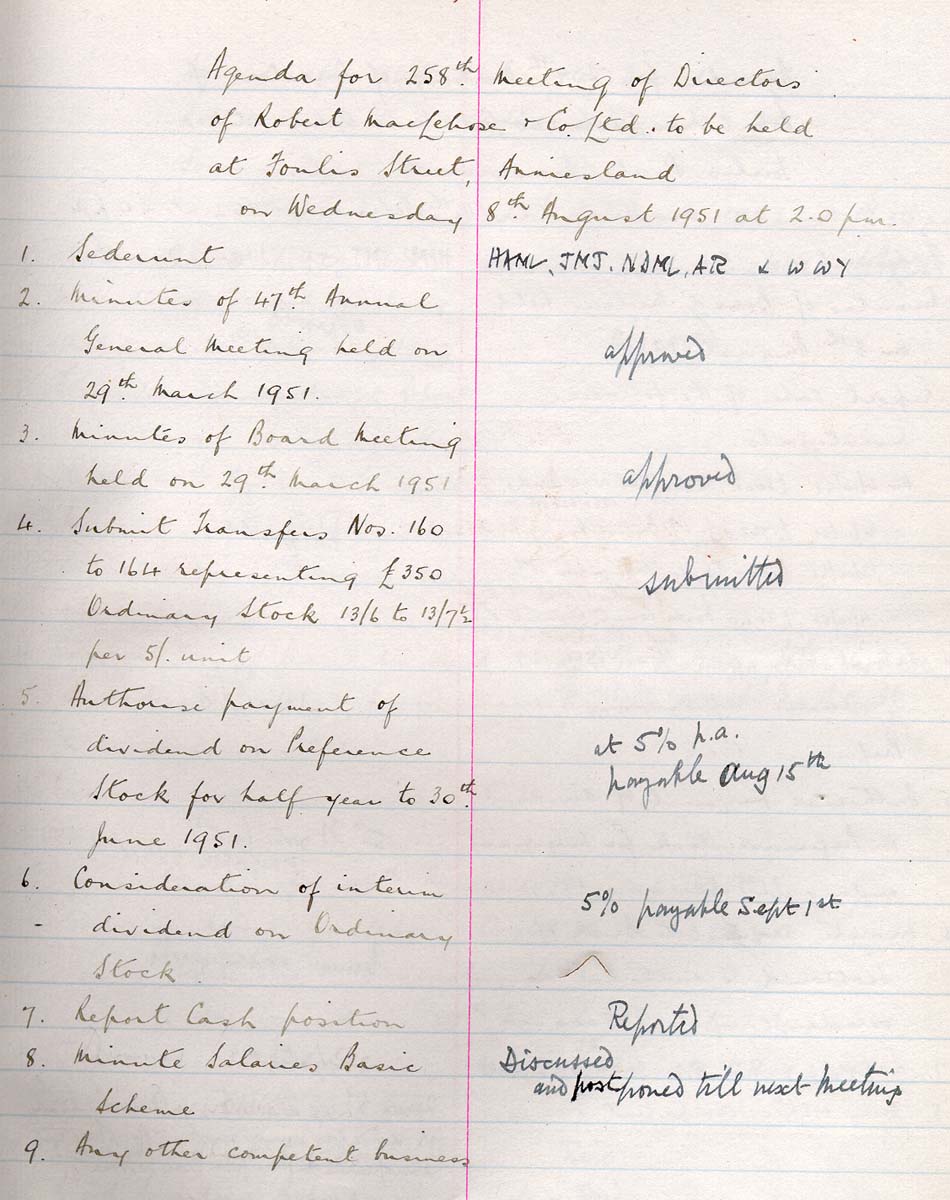 Agenda for 258th. Meeting of Directors
of Robert MacLehose & Co. Ltd. to be held
at Foulis Street, Anniesland
on Wednesday 8th. August 1951 at 2.0 p.m.
1. Sederunt HAML, JMJ, NDML, AR & WWY
2. Minutes of 47th Annual
General Meeting held on approved
29th. March 1951.
3. Minutes of Board Meeting
held on 29th. March 1951 approved
4. Submit Transfers Nos. 160
to 164 representing £350 submitted
Ordinary Stock 13/6 to 13/7½
per 5/. unit
5. Authorise payment of
dividend on Preference at 5% p.a.
Stock for half year to 30th. payable Aug 15th
June 1951.
6. Consideration of interim 5% payable Sept 1st
- dividend on Ordinary
Stock
7. Report Cash position Reported
8. Minute Salaries Basic Discussed
Scheme and postponed till next Meeting
9. Any other competent business